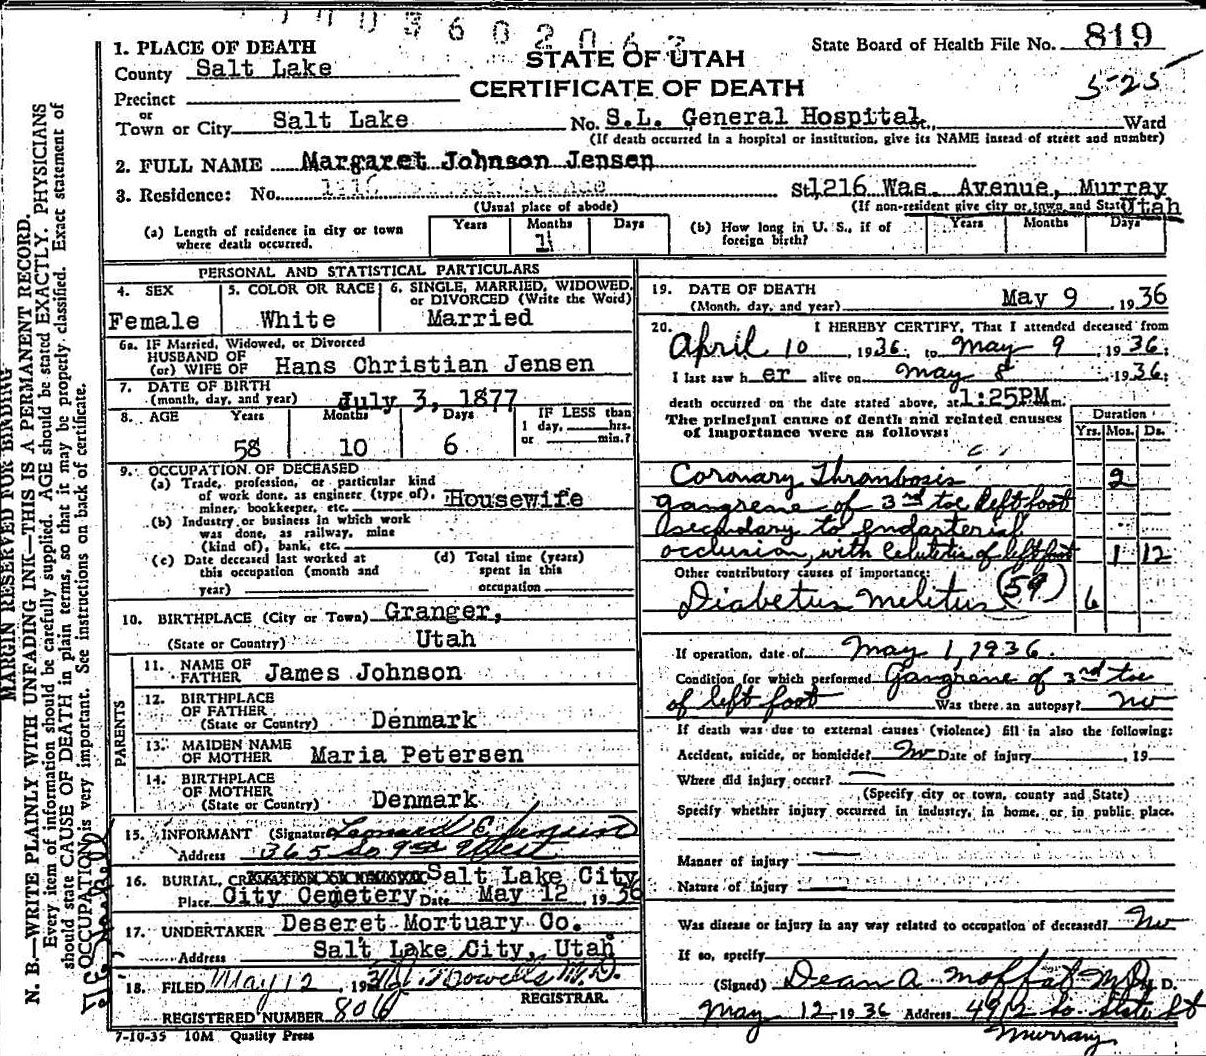 1. PLACE OF DEATH
County Salt Lake
Precinct
or
Town or City Salt Lake
STATE OF UTAH
CERTIFICATE OF DEATH
State Board of Health File No. 819
5-25
No. S.L. General Hospital St., Ward
(If death occurred in a hospital or institution, give its NAME insead of street and number)
2. FULL NAME Margaret Johnson Jensen
3. Residence: No. St. 1216 Was. Avenue, Murray
(Usual place of abode) (If non-resident give city or town and State) Utah
(a) Length of residence in city or town where death occurred. Years Months 1 Days
(b) How long in U. S., if of foreign birth? Years Months Days
PERSONAL AND STATISTICAL PARTICULARS
4. SEX
Female
5. COLOR OR RACE
White
6. SINGLE, MARRIED, WIDOWED, or DIVORCED (Write the Word)
Married
6a. IF Married, Widowed, or Divorced
HUSBAND OF
(or) WIFE OF Hans Christian Jensen
7. DATE OF BIRTH
(month, day, and year) July 3, 1877
8. AGE Years Months Days IF LESS than
1 day, hrs.
or min.?
58 10 6
9. OCCUPATION OF DECEASED
(a) Trade, profession, or particular kind
of work done, as engineer (type of),
miner, bookkeeper, etc. Housewife
(b) Industry or business in which work
was done, as railway, mine
(kind of), bank, etc.
(c) Date deceased last worked at
this occupation (month and
year)
(d) Total time (years)
spent in this
occupation
10. BIRTHPLACE (City or Town) Granger,
(State or Country) Utah
PARENTS
11. NAME OF
FATHER James Johnson
12. BIRTHPLACE
OF FATHER
(State or Country) Denmark
13. MAIDEN NAME
OF MOTHER Maria Petersen
14. BIRTHPLACE
OF MOTHER
(State or Country) Denmark
15. INFORMANT (Signature) Leonard E.
Address 365 So 9th West
16. BURIAL, Salt Lake City
Place City Cemetery Date May 12, 1936
17. UNDERTAKER Deseret Mortuary Co.
Address Salt Lake City, Utah
18. FILED May 12, 1936 M.D.
REGISTRAR.
REGISTERED NUMBER 806
7-10-35 10M Quality Press
19. DATE OF DEATH
(Month, day, and year) May 9, 1936
20. I HEREBY CERTIFY, That I attended deceased from
April 10, 1936, to May 9, 1936;
I last saw her alive on May 8, 1936;
death occurred on the date stated above, at 1:25PM m.
The principal cause of death and related causes
of importance were as follows:
Duration
Yrs. Mos. Ds.
Coronary Thrombosis 2
Gangrene of 3rd toe left foot
secondary to endarterial
occlusion, with Celulitis of left foot 1 12
Other contributory causes of importance:
Diabetus Melitus (59) 6
If operation, date of May 1, 1936.
Condition for which performed Gangrene of 3rd toe
of left foot Was there an autopsy? No
If death was due to external causes (violence) fill in also the following:
Accident, suicide, or homicide? No Date of injury , 19
Where did injury occur?
(Specify city or town, county and State)
Specify whether injury occurred in industry, in home, or in public place.
Manner of injury
Nature of injury
Was disease or injury in any way related to occupation of deceased? No
If so, specify
(Signed) Dean A. Moffat M.D. M. D.
May 12-1936 Address 4912 So. State St
Murray
MARGIN RESERVED FOR BINDING
N. B.—WRITE PLAINLY WITH UNFADING INK—THIS IS A PERMANENT RECORD.
Every item of information should be carefully supplied. AGE should be stated EXACTLY. PHYSICIANS
should state CAUSE OF DEATH in plain terms, so that it may be properly classified. Exact statement of
OCCUPATION is very important. See instructions on back of certificate.